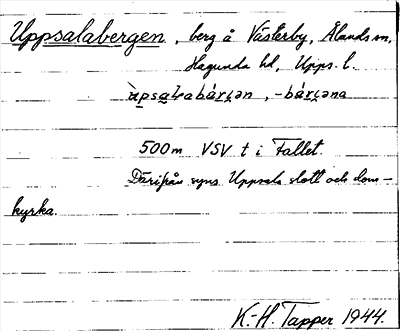 Uppsalabergen, berg å Västerby, Ålands sn,
Hagunda hd, Upps. l.
ùpsalabárjən, -bárjəna
500 m VSV t i Fallet.
Därifrån syns Uppsala slott och dom-
kyrka.
K.-H. Tapper 1944.